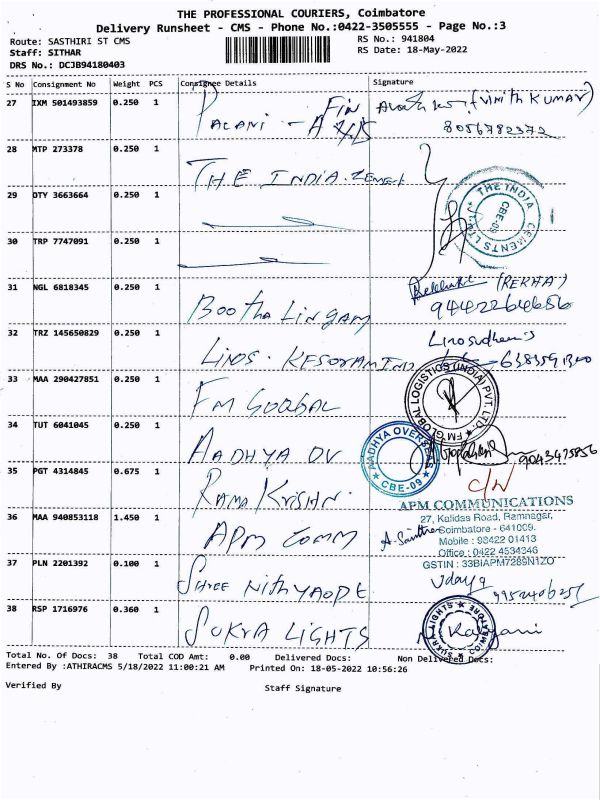 THE PROFESSIONAL COURIERS, Coimbatore
Delivery Runsheet - CMS - Phone No.:0422-3505555 - Page No.:3
Route: SASTHIRI ST CMS
RS No.: 941804
Staff: SITHAR
RS Date: 18-May-2022
DRS No.: DCJB94180403
S No Consignment No Weight PCS Consignee Details Signature
27 IXM 501493859 0.250 1 PALANI - FIN (VINITH KUMAR)
8056782372
28 MTP 273378 0.250 1 THE INDIA. Cement
29 DTY 3663664 0.250 1
THE INDIA CEMENTS LTD CBE-09
30 TRP 7747091 0.250 1
31 NGL 6818345 0.250 1 Bootha Lingam (REKHA)
9442264656
32 TRZ 145650829 0.250 1 LINOS. KESORAM IND
33 MAA 290427851 0.250 1 FM GLOBAL
FM GLOBAL LOGISTICS (INDIA) PVT. LTD.
34 TUT 6041045 0.250 1 AADHYA OV
AADHYA OVERSEAS CBE-09
9043475856
35 PGT 4314845 0.675 1 RAMA KRISHN.
C/N
APM COMMUNICATIONS
27, Kalidas Road, Ramnagar,
Coimbatore - 641009.
Mobile : 98422 01413
Office : 0422 4534346
GSTIN : 33BIAPM7289N1ZO
36 MAA 940853118 1.450 1 APM COMM
37 PLN 2201392 0.100 1 SHREE NITHYAOPE Udaya
38 RSP 1716976 0.360 1 SUKRA LIGHTS Kalyani
SUKRA LIGHTS COIMBATORE
Total No. Of Docs: 38 Total COD Amt: 0.00 Delivered Docs: Non Delivered Docs:
Entered By :ATHIRACMS 5/18/2022 11:00:21 AM Printed On: 18-05-2022 10:56:26
Verified By
Staff Signature